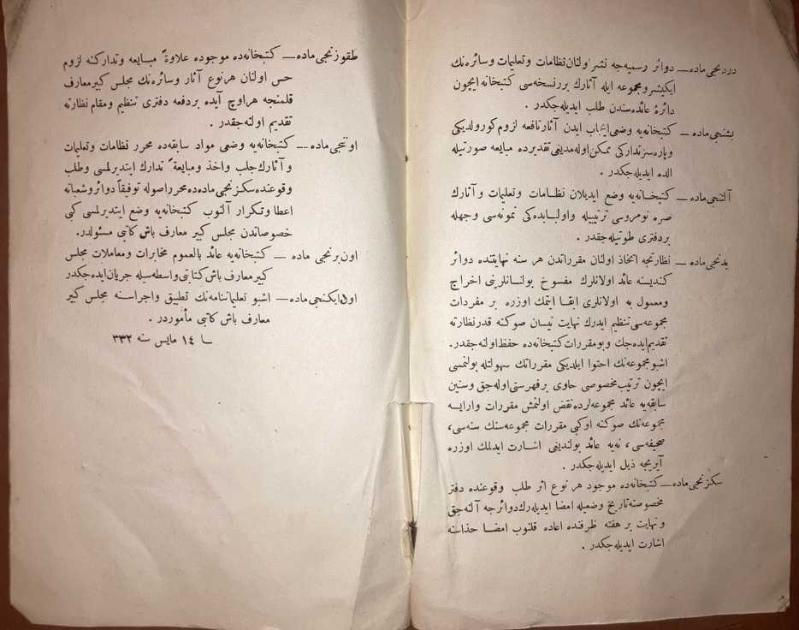 دردنجی ماده — دوائر رسمیه‌جه نشر اولنان نظامات و تعلیمات و سائره‌نك
ایكیشر و مجموعه ایله آثارك بررنسخه‌سی كتبخانه ایچون
دائرهٔ عائده‌سندن طلب ایدیله‌جكدر .
بشنجی ماده — كتبخانه‌یه وضعی ایجاب ایدن آثار نافعه لزوم كورولدیكی
و پاره‌سز تداركی ممكن اوله‌مدیغی تقدیرده مبایعه صورتیله
الده ایدیله‌جكدر .
آلتنجی ماده — كتبخانه‌یه وضع ایدیلان نظامات و تعلیمات و آثارك
صره نومروسی ترتیبیله و اولبابده‌كی نمونه‌سی وجهله
بردفتری طوتیله‌جقدر .
یدنجی ماده — نظارتجه اتخاذ اولنان مقرراتدن هر سنه نهایتنده دوائر
كندیسنه عائد اولانلرك مفسوخ بولنانلرینی اخراج
و معمول به اولانلری ابقا ایتمك اوزره بر مفردات
مجموعه‌سی تنظیم ایدرك نهایت نیسان صوكنه قدر نظارته
تقدیم ایده‌جك و بو مقررات كتبخانه‌ده حفظ اولنه‌جقدر.
اشبو مجموعه‌نك احتوا ایلدیكی مقرراتك سهولتله بولنمسی
ایچون ترتیب مخصوصی حاوی برفهرستی اوله‌جق و سنین
سابقه‌یه عائد مجموعه‌لرده نقض اولنمش مقررات وارایسه
مجموعه‌نك صوكنه اوكبی مقررات مجموعه‌سنك سنه‌سی،
صحیفه‌سی، نه‌یه عائد بولندیغی اشارت ایدلمك اوزره
آیریجه ذیل ایدیله‌جكدر .
سكزنجی ماده — كتبخانه‌ده موجود هر نوع اثر طلب وقوعنده دفتر
مخصوصنه تاریخ وضعیله امضا ایدیله‌رك دوائرجه آلنه‌جق
و نهایت بر هفته ظرفنده اعاده قلنوب امضا حذاسنه
اشارت ایدیله‌جكدر .
طقوزنجی ماده — كتبخانه‌ده موجوده علاوةً مبایعه و تداركنه لزوم
حس اولنان هر نوع آثار و سائره‌نك مجلس كبیر معارف
قلمنجه هر اوچ آیده بردفعه دفتری تنظیم و مقام نظارته
تقدیم اولنه‌جقدر .
اوننجی ماده — كتبخانه‌یه وضعی مواد سابقه‌ده محرر نظامات و تعلیمات
و آثارك جلب و اخذ و مبایعةً تدارك ایتدیرلمسی و طلب
وقوعنده سكزنجی ماده‌ده محرر اصوله توفیقاً دوائر و شعباته
اعطا و تكرار آلنوب كتبخانه‌یه وضع ایتدیرلمسی كبی
خصوصاتدن مجلس كبیر معارف باش كاتبی مسئولدر.
اون برنجی ماده — كتبخانه‌یه عائد بالعموم مخابرات و معاملات مجلس
كبیر معارف باش كتابتی واسطه‌سیله جریان ایده‌جكدر
اون ایكنجی ماده — اشبو تعلیماتنامه‌نك تطبیق و اجراسنه مجلس كبیر
معارف باش كاتبی مأموردر .
١٤ مایس سنه ٣٣٢